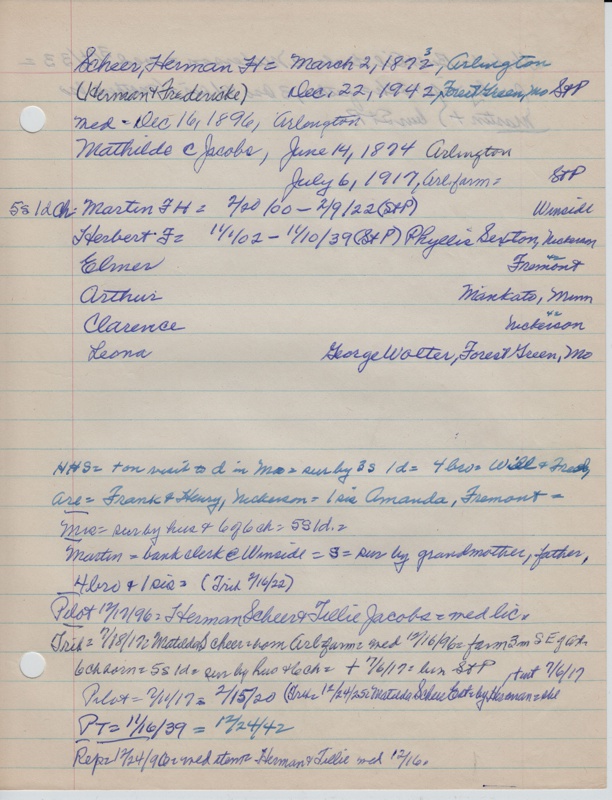 Scheer, Herman H = March 2, 1872 3, Arlington
(Herman & Fredericke) Dec. 22, 1942, Forest Green, Mo St P
med - Dec 16, 1896, Arlington
Mathilde C Jacobs, June 14, 1874 Arlington
July 6, 1917, Arl farm = St P
5s 1d Ch: Martin F H = 2/20/00 - 2/9/22 (St P) Winside
Herbert F = 11/1/02 - 11/10/39 (St P) Phyllis Sexton, Nickerson
Elmer Fremont 42
Arthur Mankato, Minn
Clarence Nickerson 42
Leona George Wolter, Forest Green, Mo
HHS = + on visit to d in Mo = sur by 3s 1d = 4 bro = Will & Fred,
Arl = Frank & Henry, Nickerson = 1 sis Amanda, Fremont =
Mrs = sur by hus & 6 of 6 ch = 5s 1d. =
Martin = bank clerk @ Winside = S = sur by grandmother, father,
4 bro & 1 sis = (Trib 2/16/22)
Pilot 12/17/96 = Herman Scheer & Tillie Jacobs = med lic.
Trib = 7/18/17 = Matilda Scheer = born Arl farm = med 12/16/96 = farm 3m S E of
6 ch born = 5s 1d = sur by hus & 6 ch = + 7/6/17 = bur St P + wt 7/6/17
Pilot = 7/11/17 = 2/15/20 (Trib = 12/24/25: Matilda Scheer Est = by Herman =
PT = 11/16/39 = 12/24/42
Rep = 12/24/96 = med item = Herman & Tillie med 12/16.